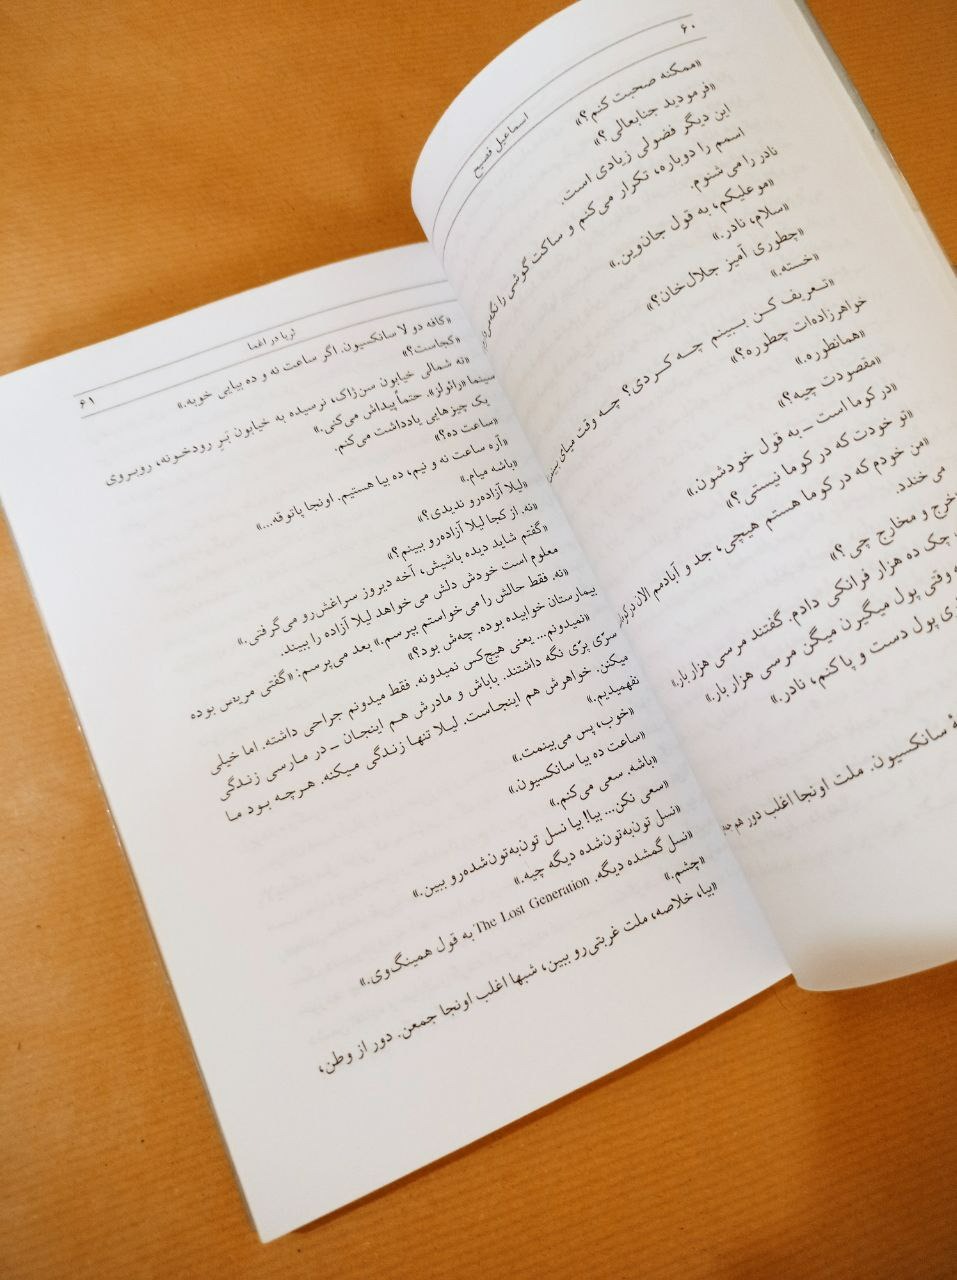 ۶۰
اسماعیل فصیح
«ممکنه صحبت کنم؟»
«فرمودید جنابعالی؟»
این دیگر فضولی زیادی است.
اسمم را دوباره، تکرار می‌کنم و ساکت گوشی را نگه
نادر را می‌شنوم.
«مو علیکم، به قول جان‌وین.»
«سلام، نادر.»
«چطوری آمیز جلال‌خان؟»
«خسته.»
«تعریف کن ببینم چه کردی؟ چه وقت میای
خواهرزاده‌ات چطوره؟»
«همانطوره.»
«مقصودت چیه؟»
«در کوما است ــ به قول خودشون.»
«تو خودت که در کوما نیستی؟»
«من خودم که در کوما هستم هیچی، جد و آبادمم الان در
می خندد.
خرج و مخارج چی؟»
چک ده هزار فرانکی دادم. گفتند مرسی هزار بار»
وقتی پول میگیرن میگن مرسی هزار بار»
پول دست و پا کنم، نادر.»
سانکسیون. ملت اونجا اغلب دور هم
ثریا در اغما
۶۱
«کافه دو لا سانکسیون. اگر ساعت نه و ده بیایی خوبه.»
«کجاست؟»
«نه شمالی خیابون سن‌ژاک، نرسیده به خیابون بَرِ رودخونه، روبروی
سینما «رائولز». حتماً پیداش می‌کنی.»
یک چیزهایی یادداشت می‌کنم.
«ساعت ده؟»
«آره ساعت نه و نیم، ده بیا هستیم. اونجا پاتوقه...»
«باشه میام.»
«لیلا آزاده‌رو ندیدی؟»
«نه. از کجا لیلا آزاده‌رو ببینم؟»
«گفتم شاید دیده باشیش، آخه دیروز سراغش‌رو می‌گرفتی.»
معلوم است خودش دلش می خواهد لیلا آزاده را ببیند.
«نه. فقط حالش را می خواستم بپرسم.» بعد می‌پرسم: «گفتی مریض بوده
بیمارستان خوابیده بوده. چه‌ش بود؟»
«نمیدونم... یعنی هیچ‌کس نمیدونه. فقط میدونم جراحی داشته. اما خیلی
سرّی برّی نگه داشتند. باباش و مادرش هم اینجان ــ در مارسی زندگی
میکنن. خواهرش هم اینجاست. لیلا تنها زندگی میکنه. هرچه بود ما
نفهمیدیم.»
«خوب، پس می‌بینمت.»
«ساعت ده بیا سانکسیون.»
«باشه. سعی می‌کنم.»
«سعی نکن... بیا! بیا نسل تون‌به‌تون‌شده‌رو ببین.»
«نسل تون‌به‌تون‌شده دیگه چیه.»
«نسل گمشده دیگه. The Lost Generation به قول همینگ‌وی.»
«چشم.»
«بیا، خلاصه، ملت غربتی‌رو ببین، شبها اغلب اونجا جمعن. دور از وطن،